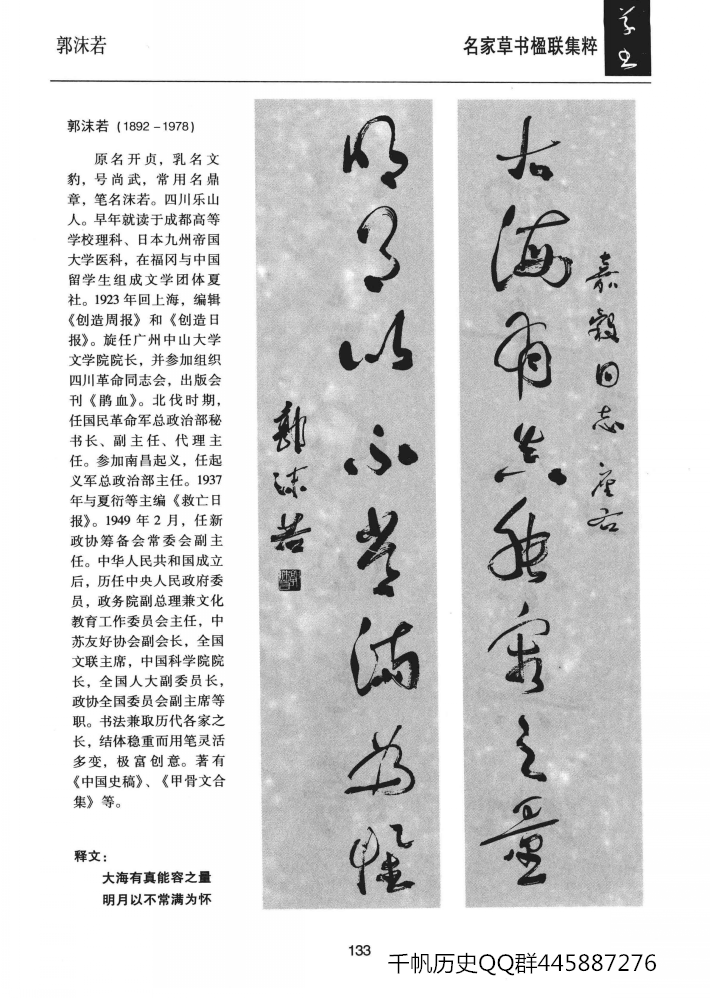 郭沫若
名家草书楹联集粹
草书
郭沫若（1892－1978）
原名开贞，乳名文
豹，号尚武，常用名鼎
章，笔名沫若。四川乐山
人。早年就读于成都高等
学校理科、日本九州帝国
大学医科，在福冈与中国
留学生组成文学团体夏
社。1923年回上海，编辑
《创造周报》和《创造日
报》。旋任广州中山大学
文学院院长，并参加组织
四川革命同志会，出版会
刊《鹃血》。北伐时期，
任国民革命军总政治部秘
书长、副主任、代理主
任。参加南昌起义，任起
义军总政治部主任。1937
年与夏衍等主编《救亡日
报》。1949年2月，任新
政协筹备会常委会副主
任。中华人民共和国成立
后，历任中央人民政府委
员，政务院副总理兼文化
教育工作委员会主任，中
苏友好协会副会长，全国
文联主席，中国科学院院
长，全国人大副委员长，
政协全国委员会副主席等
职。书法兼取历代各家之
长，结体稳重而用笔灵活
多变，极富创意。著有
《中国史稿》、《甲骨文合
集》等。
嘉穀同志座右
大海有真能容之量
明月以不常满为怀
郭沫若
释文：
大海有真能容之量
明月以不常满为怀
133
千帆历史QQ群445887276